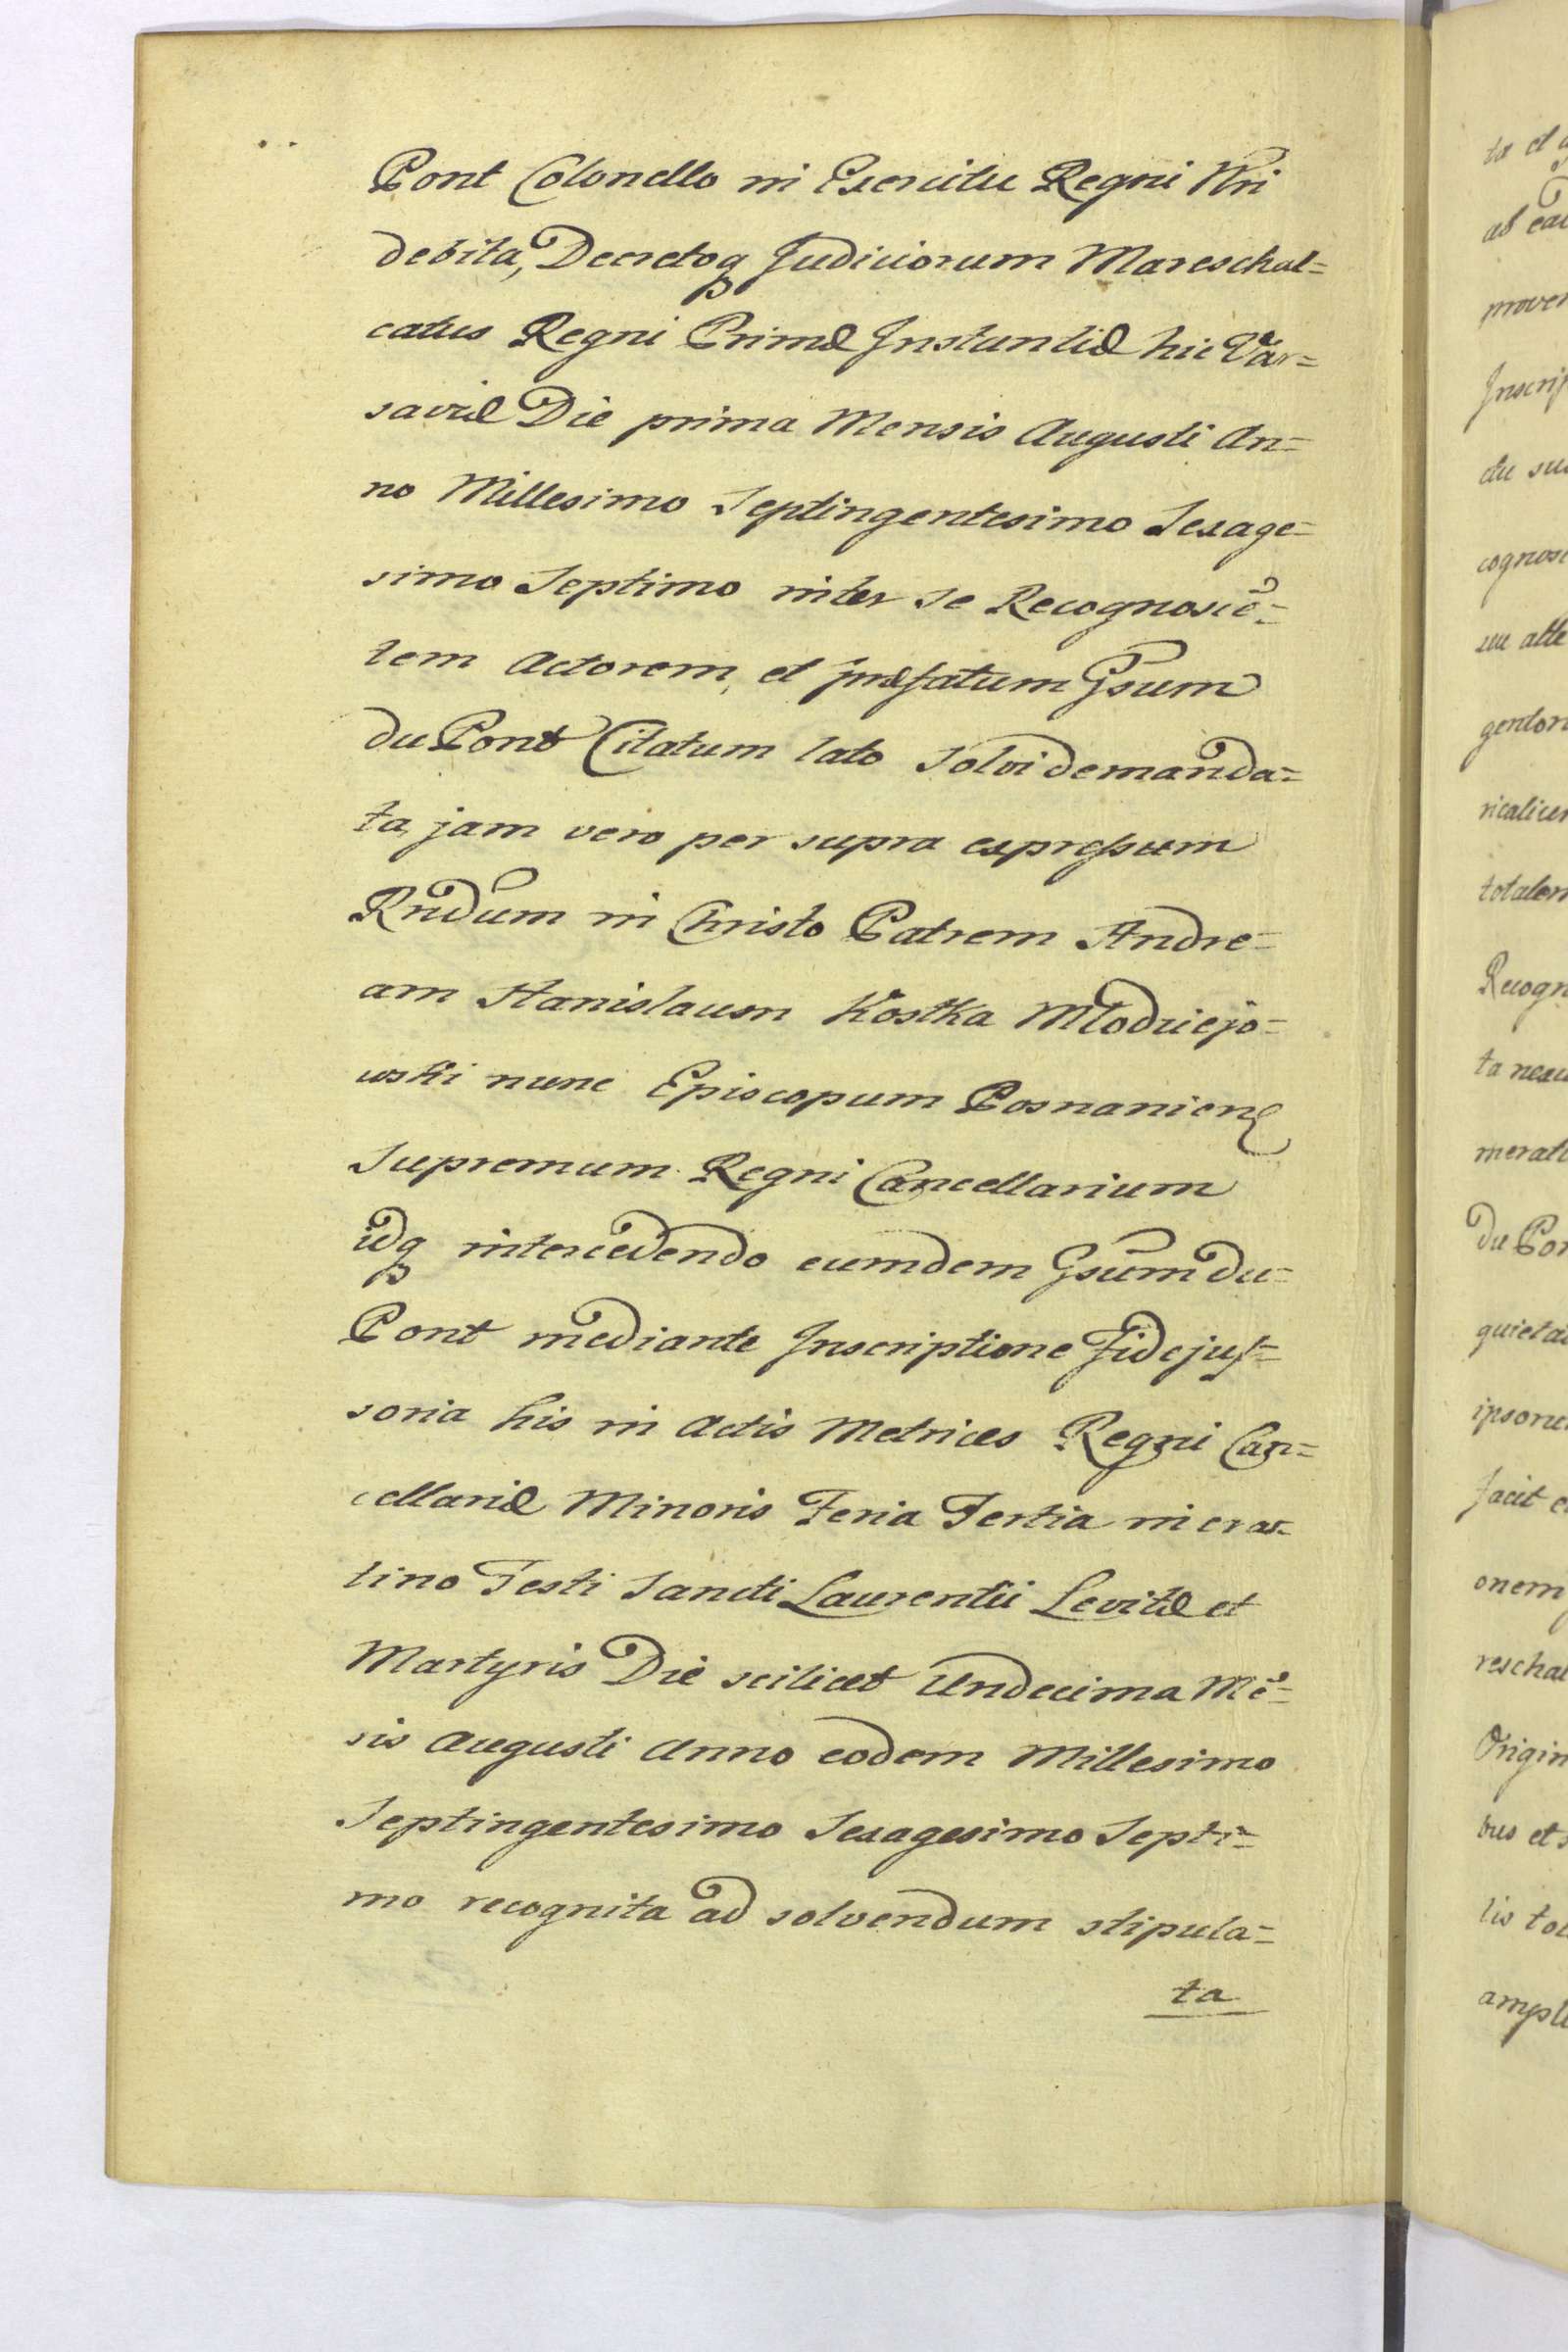 Pont Colonello in Exercitu Regni Nri
debita, Decretoq Judiciorum Mareschal=
catus Regni Primæ Instantiæ hic Var=
saviæ Die prima Mensis Augusti An=
no Millesimo Septingentesimo Sexage=
simo Septimo inter se Recognoscẽ=
tem Actorem, et præfatum Gsum
du Pont Citatum lato solvi demanda=
ta, jam vero per supra expressum
Rndum in Christo Patrem Andre=
am Stanislaum Kostka Młodziejo=
wski nunc Episcopum Posnaniens
Supremum Regni Cancellarium
idq intercedendo eumdem Gsum du=
Pont mediante Inscriptione Fidejus=
soria his in Actis Metrices Regni Can=
cellariæ Minoris Feria Tertia in cras=
tino Festi Sancti Laurentii Levitæ et
Martyris Die scilicet Undecima Mẽ=
sis Augusti Anno eodem Millesimo
Septingentesimo Sexagesimo Septi=
mo recognita ad solvendum stipula=
ta